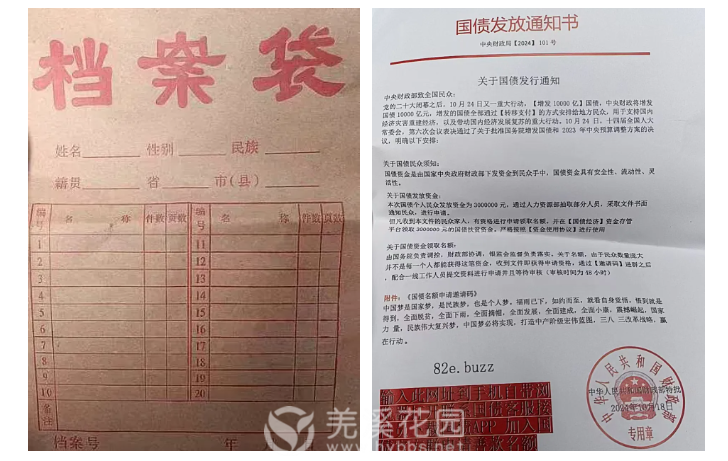 档案袋
姓名 性别 民族
籍贯 省 市(县)
编号 名 称 件数 页数 编号 名 称 件数 页数
1 11
2 12
3 13
4 14
5 15
6 16
7 17
8 18
9 19
10 20
备注
档案号 年
国债发放通知书
中央财政局【2024】101号
关于国债发行通知
中央财政部致全国民众:
党的二十大闭幕之后,10月24日又一重大行动,【增发10000亿】国债,中央财政将增发
国债10000亿元,增发的国债全部通过【转移支付】的方式安排给地方民众,用于支持国内
经济灾害重建经济,以及带动国内经济发展复苏的重大行动。10月24日,十四届全国人大
常委会,第六次会议表决通过了关于批准国务院增发国债和2023年中央预算调整方案的决
议,明确以下安排:
关于国债民众须知:
国债资金是由国家中央政府财政局下发资金到民众手中,国债资金具有安全性、流动性、灵
活性。
关于国债发放资金:
本次国债个人民众发放资金为3000000元,通过人力资源部抽取部分人员,采取文件书面
通知民众,进行申请。
但凡收到本文件的民众家人,有资格进行申请领取名额,并在【国债经济】资金存管
平台领取3000000元的国债扶贫资金,严格按照【资金使用协议】进行使用
关于国债资金领取名额:
由国务院负责调控,财政部协调,银监会监督负责落实。关于名额,由于民众数量庞大
并不是每一个人都能获得这笔资金,收到文件即获得申请资格,通过【邀请码】进群之后
,配合一线工作人员提交资料进行申请并且等待审核(审核时间为48小时)
附件:《国债名额申请邀请码》
中国梦是国家梦,是民族梦,也是个人梦。福雨已下,如约而至,就看自身觉悟,悟到就是
得到,全面脱贫,全面下雨,全面摘帽,全面发展,全面建成,全面小康,震撼崛起,国家
力量,民族伟大复兴梦,中国梦必将实现,打造中产阶级宏伟蓝图,三八 三改革战略,赢
在行动。
82e.buzz
输入此网址到手机自带浏
APP 加入国
中华人民共和国财政部
中华人民共和国财政部特批
2024年10月18日
专用章
羌溪花园
www.hybbs.net